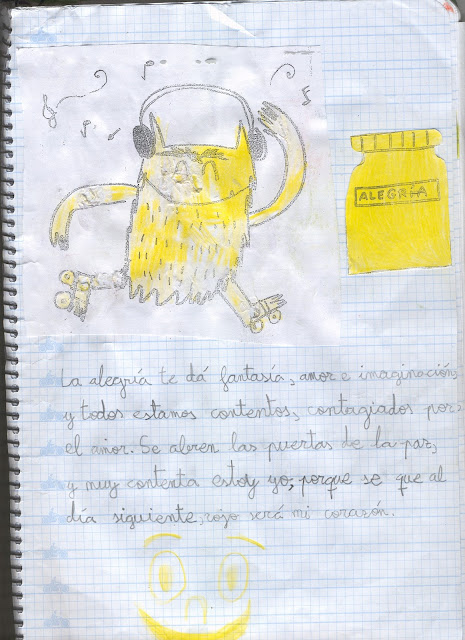 ALEGRÍA
La alegría te dá fantasía, amor e imaginación,
y todos estamos contentos, contagiados por
el amor. Se abren las puertas de la paz,
y muy contenta estoy yo, porque se que al
día siguiente, rojo será mi corazón.